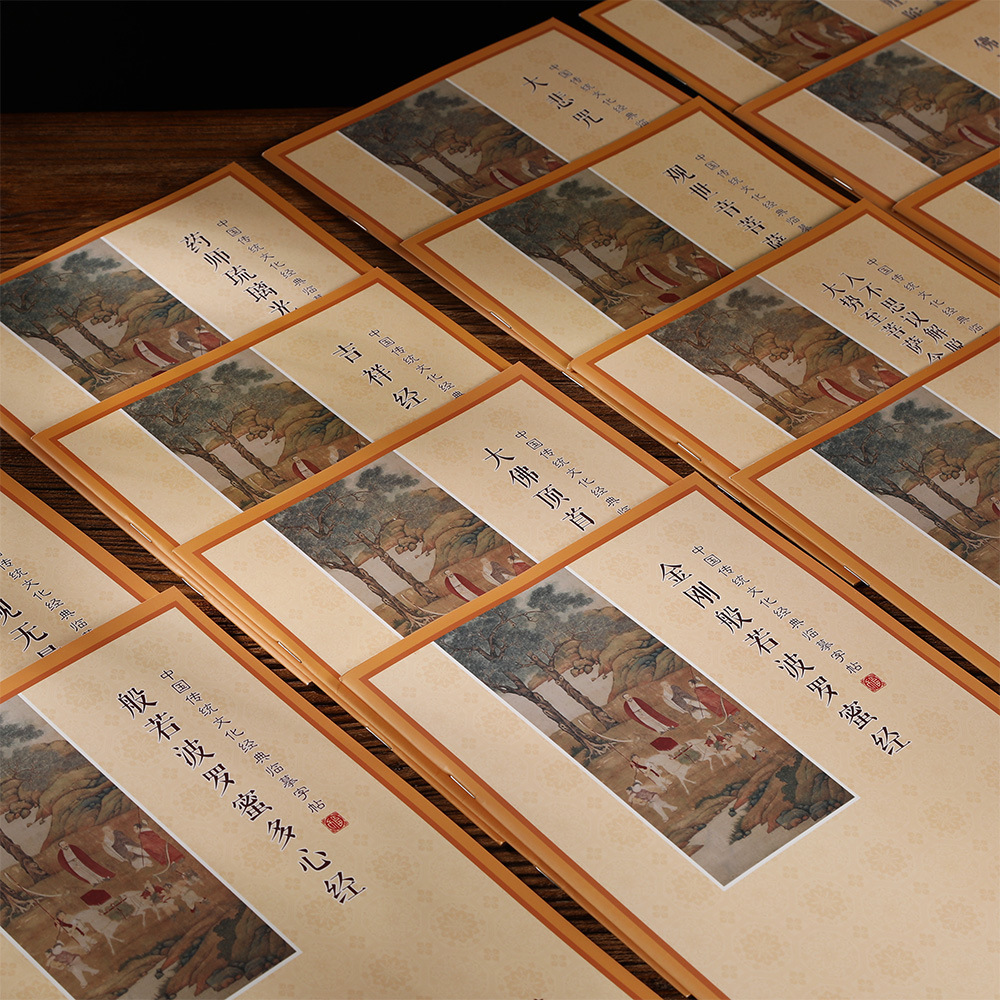 大悲咒
中国传统文化经典临
观世音菩萨
中国传统文化经典临
药师琉璃光
中国传统文化经典临
吉祥经
中国传统文化经典
入不思议解脱
大势至菩萨念
中国传统文化经典临
大佛顶首
中国传统文化经典临
金刚般若波罗蜜经
中国传统文化经典临摹字帖
见无
文化经典临
般若波罗蜜多心经
中国传统文化经典临摹字帖
佛